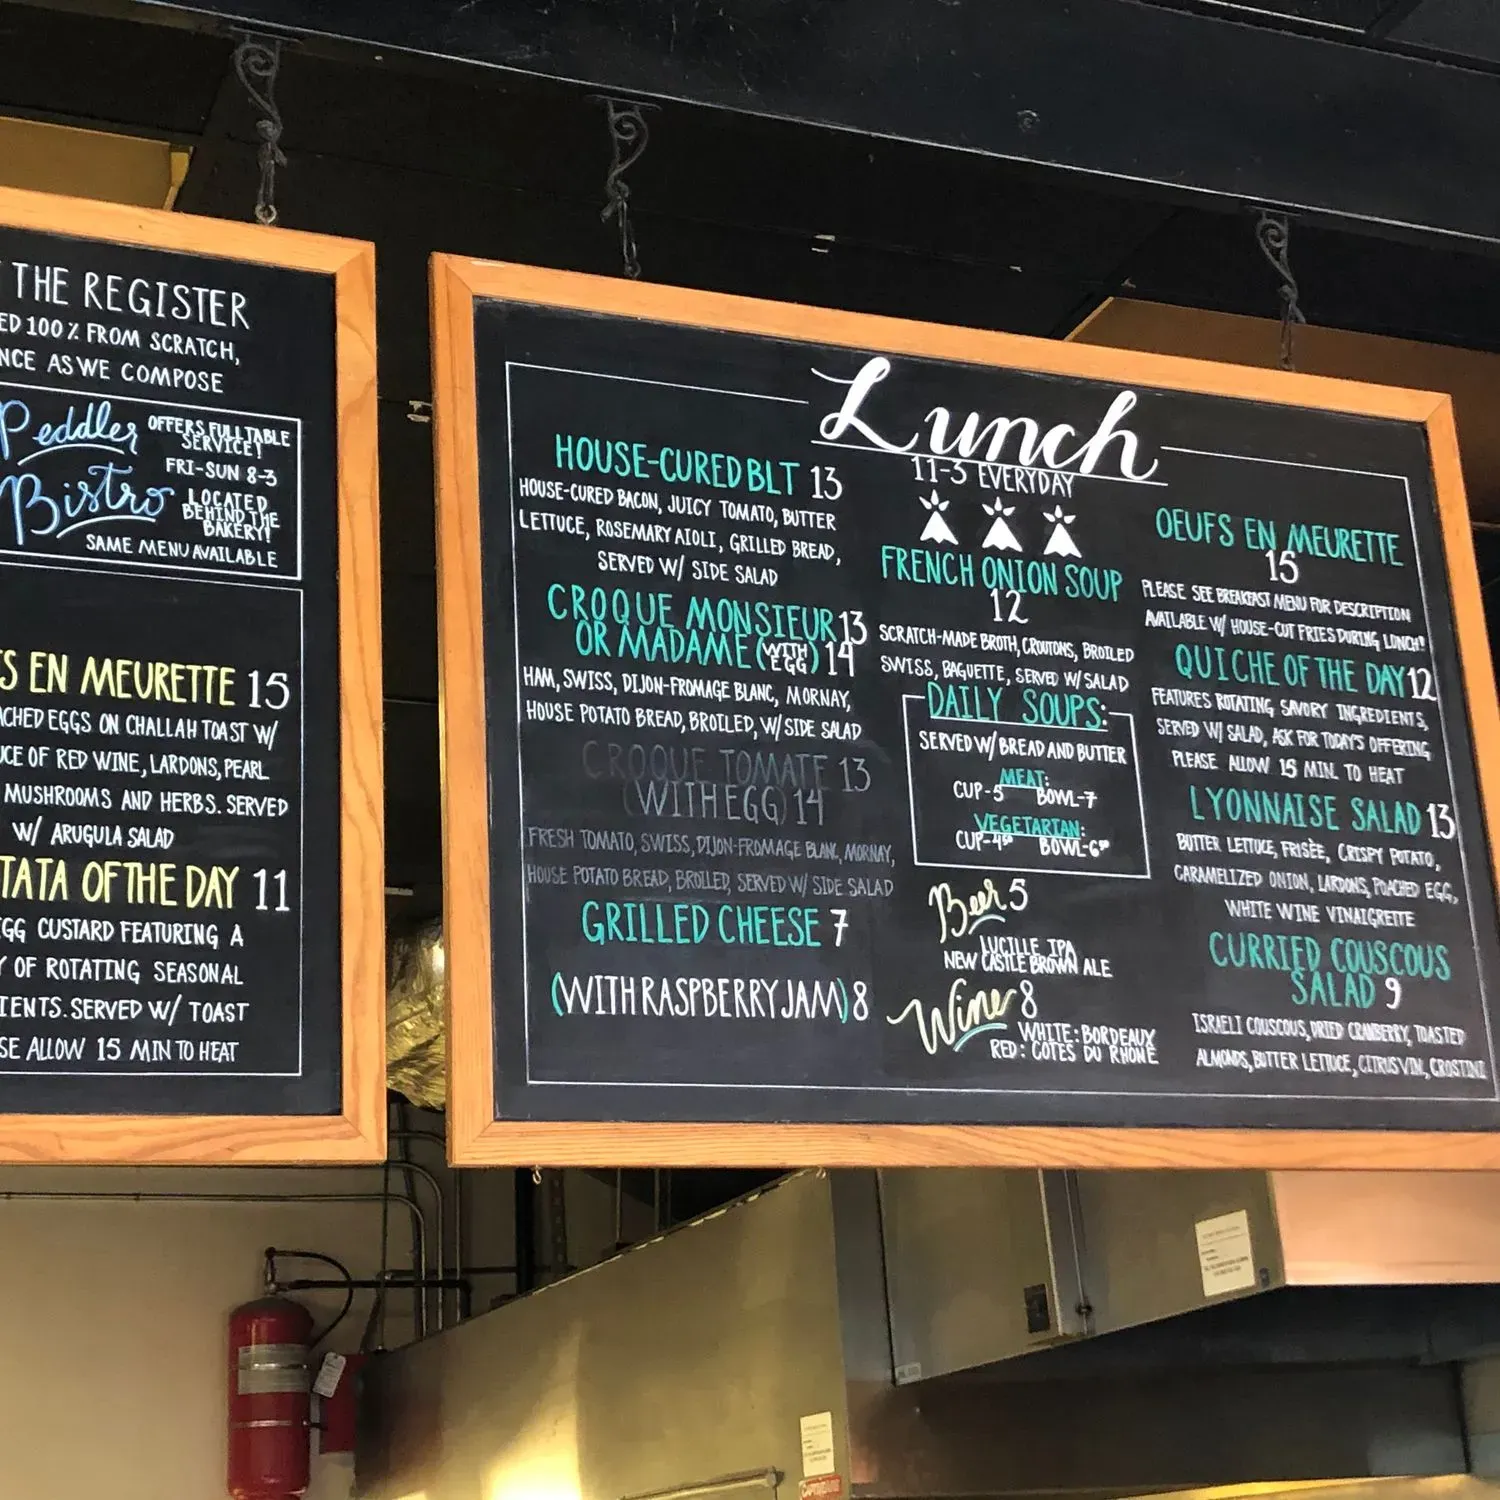 THE REGISTER
ED 100% FROM SCRATCH,
NCE AS WE COMPOSE
Peddler
Bistro
OFFERS FULL TABLE
SERVICE!
FRI-SUN 8-3
LOCATED
BEHIND THE
BAKERY!
SAME MENU AVAILABLE
S EN MEURETTE 15
ACHED EGGS ON CHALLAH TOAST W/
UCE OF RED WINE, LARDONS, PEARL
MUSHROOMS AND HERBS. SERVED
W/ ARUGULA SALAD
TATA OF THE DAY 11
GG CUSTARD FEATURING A
Y OF ROTATING SEASONAL
IENTS. SERVED W/ TOAST
SE ALLOW 15 MIN TO HEAT
Lunch
11-3 EVERYDAY
HOUSE-CURED BLT 13
HOUSE-CURED BACON, JUICY TOMATO, BUTTER
LETTUCE, ROSEMARY AIOLI, GRILLED BREAD,
SERVED W/ SIDE SALAD
CROQUE MONSIEUR 13
OR MADAME (WITH EGG) 14
HAM, SWISS, DIJON-FROMAGE BLANC, MORNAY,
HOUSE POTATO BREAD, BROILED, W/ SIDE SALAD
CROQUE TOMATE 13
(WITH EGG) 14
FRESH TOMATO, SWISS, DIJON-FROMAGE BLANC, MORNAY,
HOUSE POTATO BREAD, BROILED, SERVED W/ SIDE SALAD
GRILLED CHEESE 7
(WITH RASPBERRY JAM) 8
FRENCH ONION SOUP
12
SCRATCH-MADE BROTH, CROUTONS, BROILED
SWISS, BAGUETTE, SERVED W/ SALAD
DAILY SOUPS:
SERVED W/ BREAD AND BUTTER
MEAT:
CUP-5 BOWL-7
VEGETARIAN:
CUP-4⁵⁰ BOWL-6⁵⁰
Beer 5
LUCILLE IPA
NEW CASTLE BROWN ALE
Wine 8
WHITE: BORDEAUX
RED: COTES DU RHONE
OEUFS EN MEURETTE
15
PLEASE SEE BREAKFAST MENU FOR DESCRIPTION
AVAILABLE W/ HOUSE-CUT FRIES DURING LUNCH!
QUICHE OF THE DAY 12
FEATURES ROTATING SAVORY INGREDIENTS,
SERVED W/ SALAD, ASK FOR TODAY'S OFFERING
PLEASE ALLOW 15 MIN. TO HEAT
LYONNAISE SALAD 13
BUTTER LETTUCE, FRISÈE, CRISPY POTATO,
CARAMELIZED ONION, LARDONS, POACHED EGG,
WHITE WINE VINAIGRETTE
CURRIED COUSCOUS
SALAD 9
ISRAELI COUSCOUS, DRIED CRANBERRY, TOASTED
ALMONDS, BUTTER LETTUCE, CITRUS VIN, CROSTINI